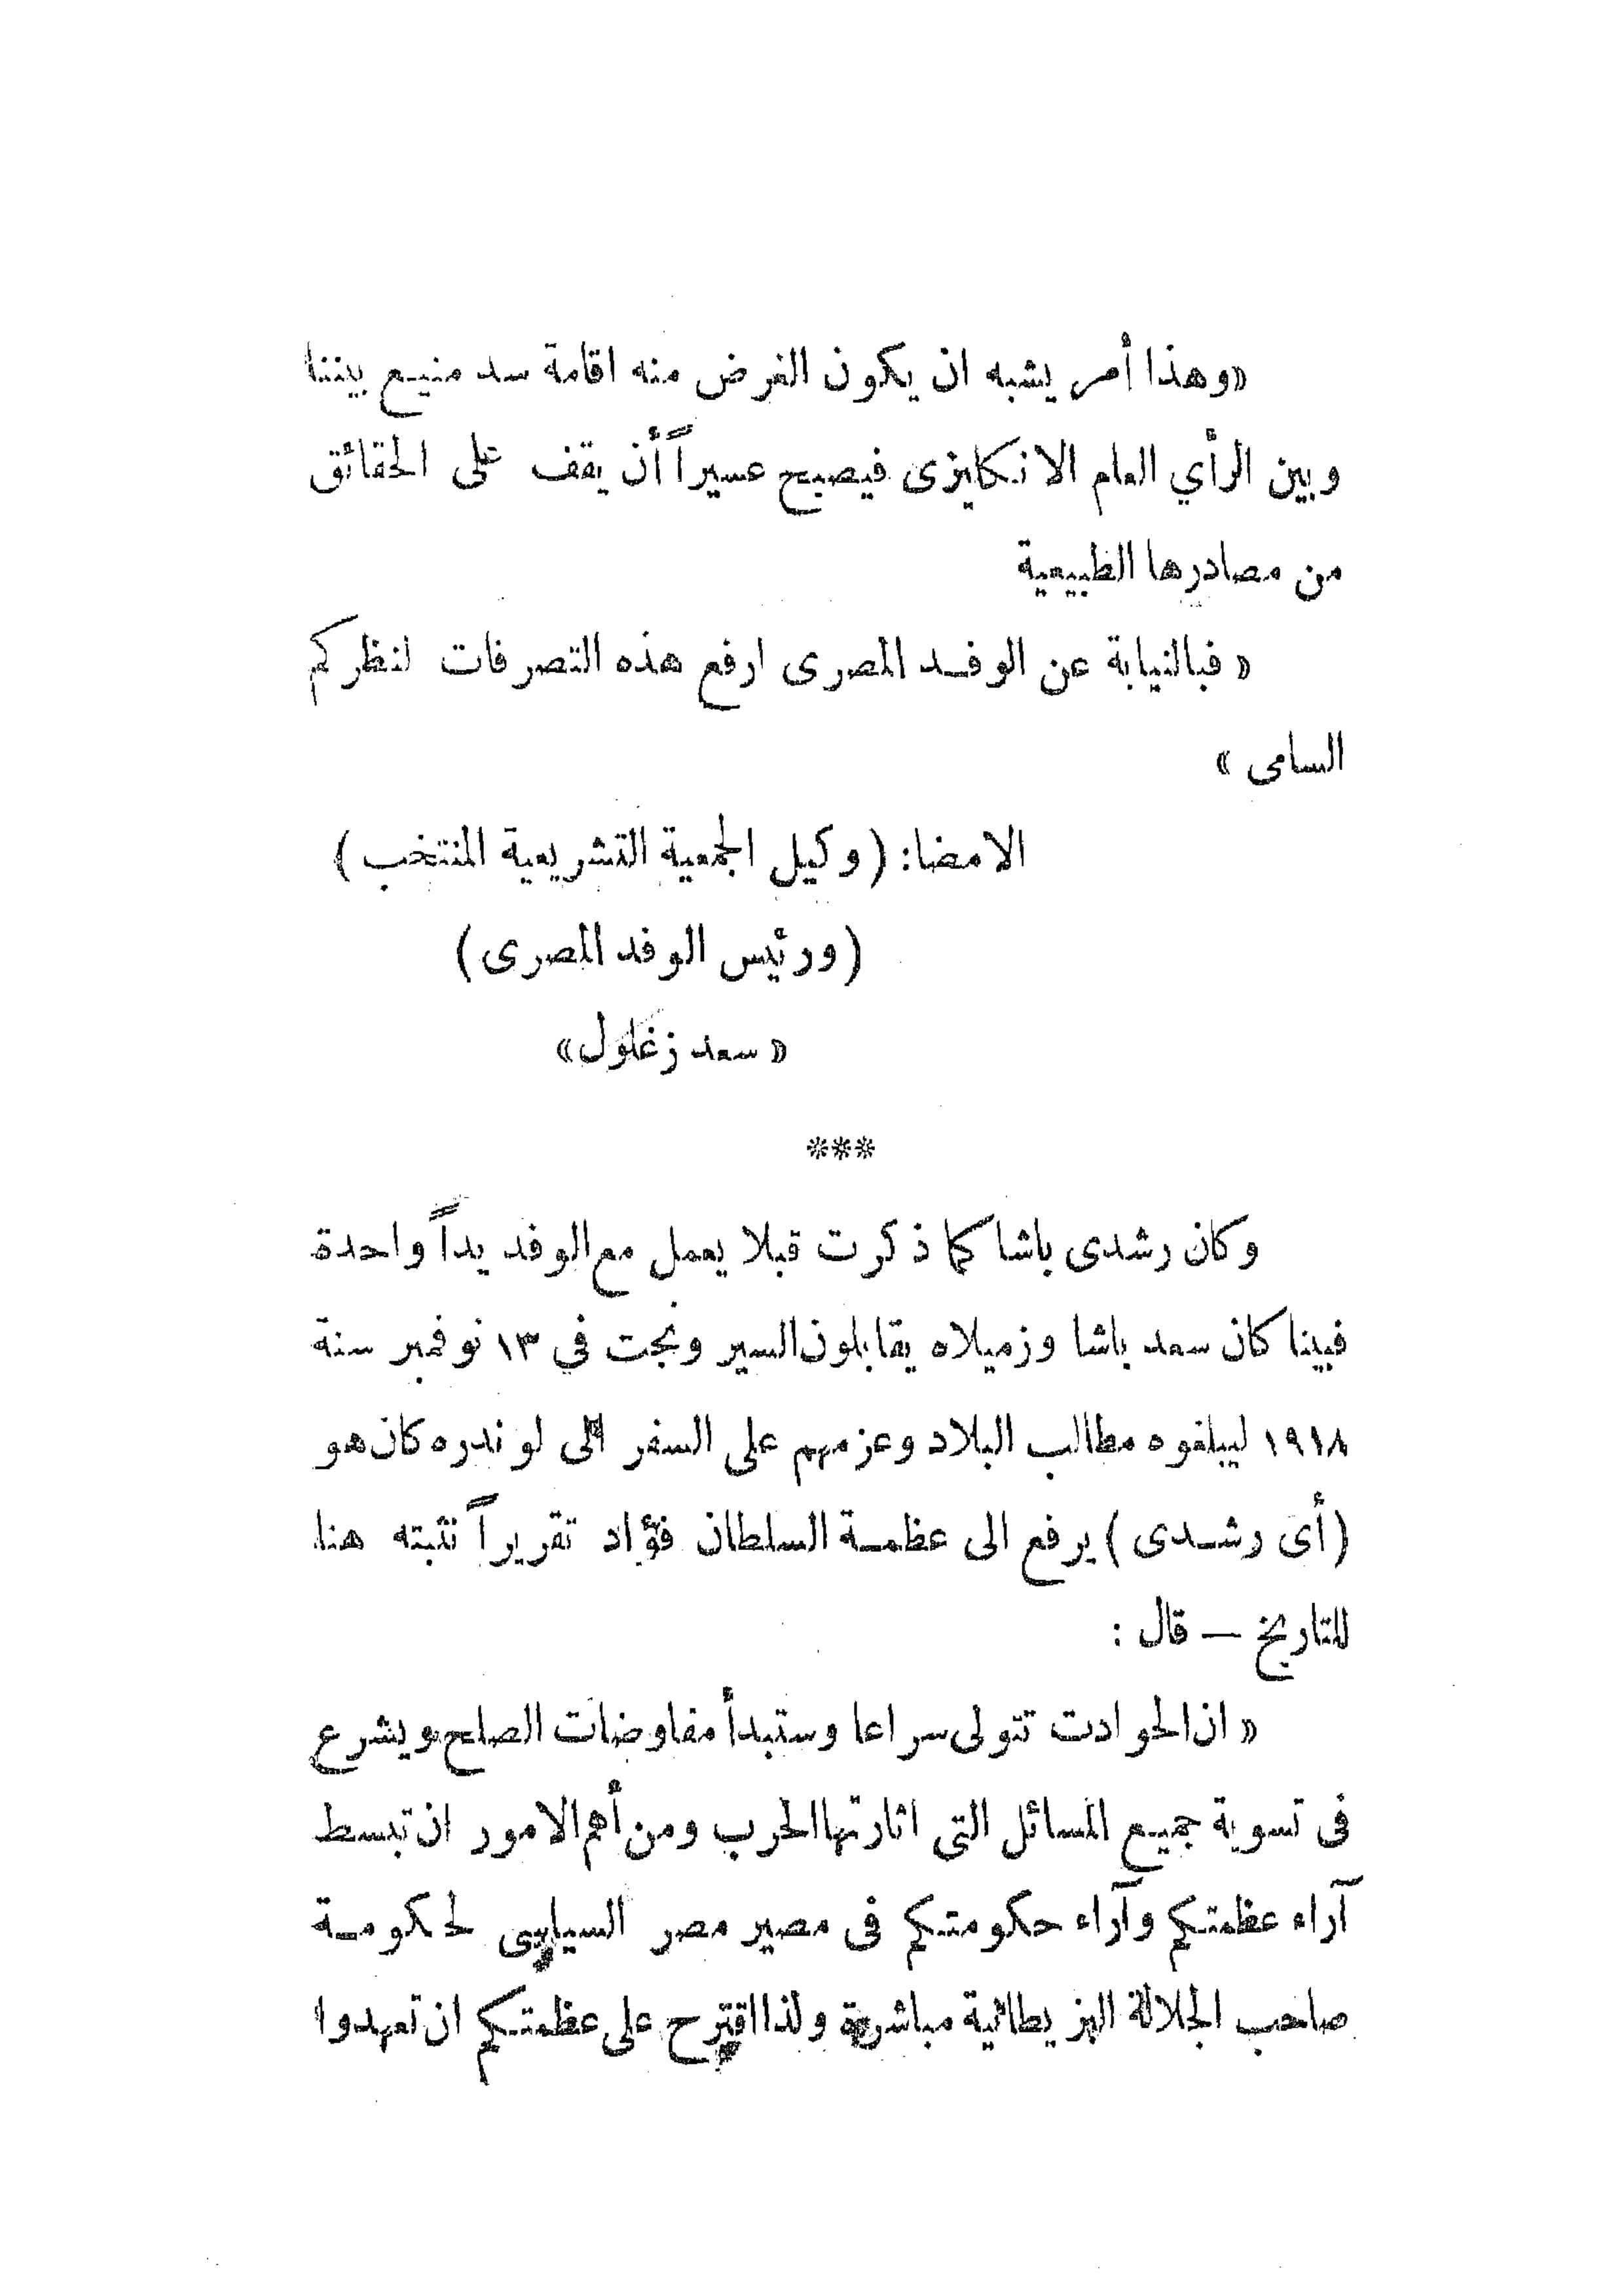 «وهذا أمر يشبه ان يكون الغرض منه اقامة سد منيع بيننا
وبين الرأي العام الانكليزى فيصبح عسيراً أن يقف على الحقائق
من مصادرها الطبيعية
« فبالنيابة عن الوفد المصرى ارفع هذه التصرفات لنظركم
السامى »
الامضا: (وكيل الجمعية التشريعية المنتخب)
(ورئيس الوفد المصرى)
« سعد زغلول»
***
وكان رشدى باشا كما ذكرت قبلا يعمل مع الوفد يداً واحدة
فبينا كان سعد باشا وزميلاه يقابلون السير ونجت في ١٣ نوفمبر سنة
١٩١٨ ليبلغوه مطالب البلاد وعزمهم على السفر الى لوندره كان هو
(أى رشدى) يرفع الى عظمة السلطان فؤاد تقريراً نثبته هنا
للتاريخ — قال :
« ان الحوادث تتولى سراعا وستبدأ مفاوضات الصلح ويشرع
فى تسوية جميع المسائل التى اثارتها الحرب ومن أهم الامور ان تبسط
آراء عظمتكم وآراء حكومتكم فى مصير مصر السياسى لحكومة
صاحب الجلالة البريطانية مباشرة ولذا اقترح على عظمتكم ان تعهدوا